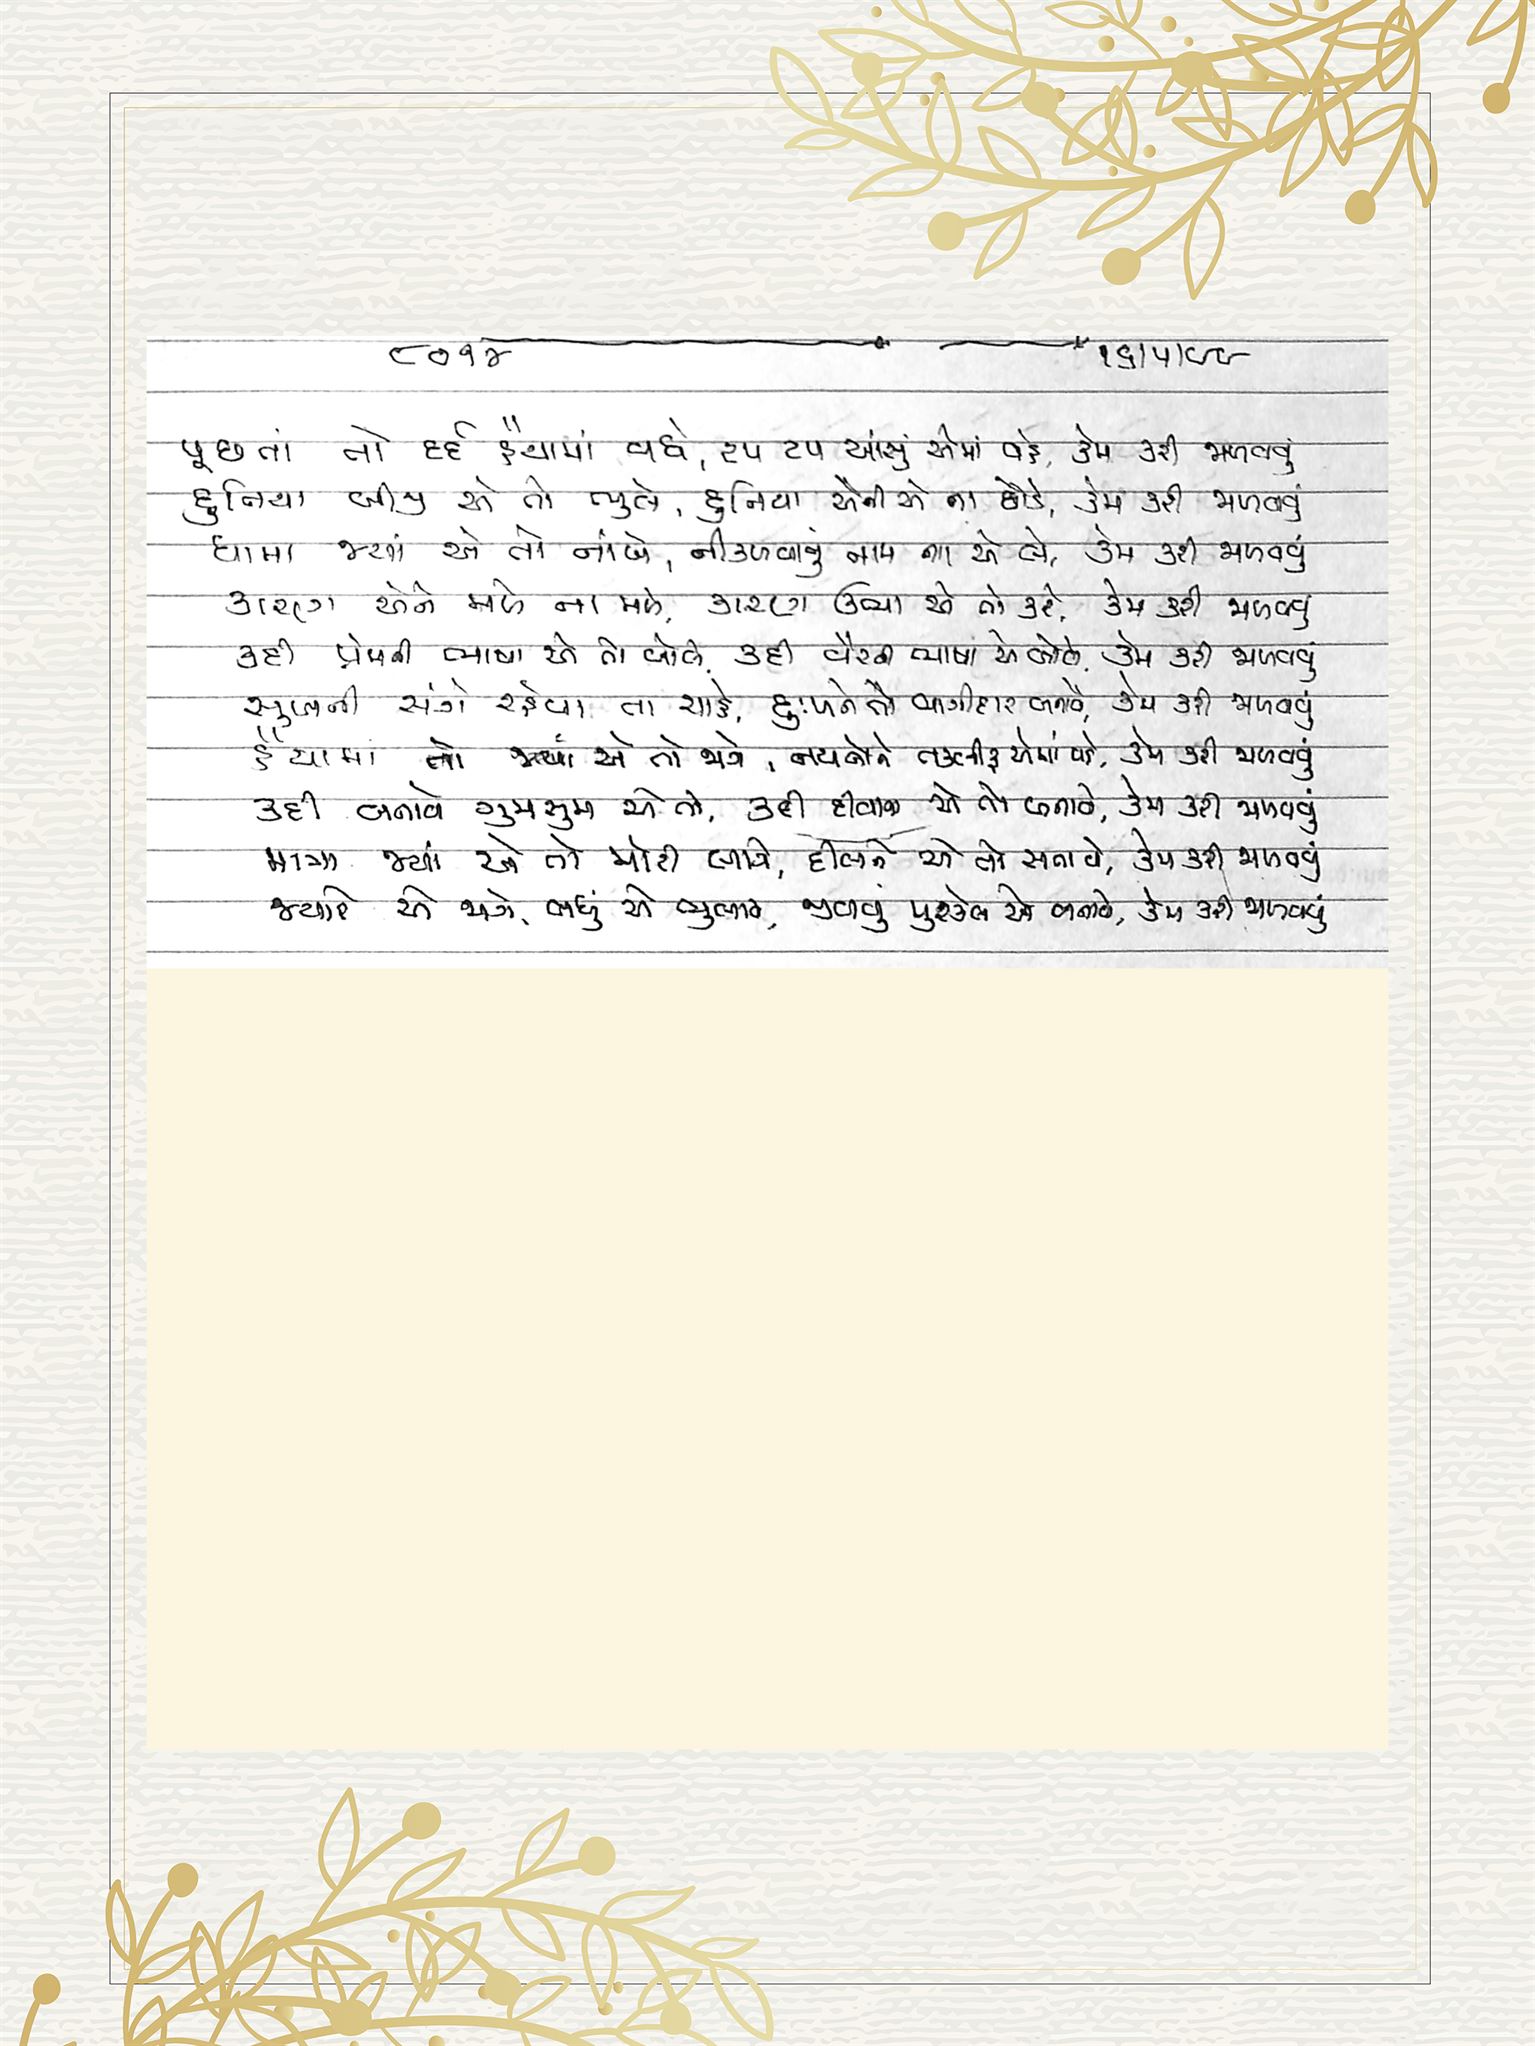 ૮૦૧૪ ૧૬।૫।૯૯
પૂછતાં તો દર્દ હૈયામાં વધે, ટપ ટપ આંસું એમાં વહે, કેમ કરી ભળવવું
દુનિયા બીજી એ તો ભુલે, દુનિયા એની એ ના છોડે, કેમ કરી ભળવવું
ધામા જ્યાં એ તો નાંખે, નીકળવાનું નામ ના એ લે, કેમ કરી ભળવવું
કારણ એને મળે ના મળે, કારણ ઉભા એ તો કરે, કેમ કરી ભળવવું
કદી પ્રેમની ભાષા એ તો બોલે, કદી વૈરની ભાષા એ બોલે, કેમ કરી ભળવવું
સુખની સંગે રહેવા ના ચાહે, દુઃખને તો ભાગીદાર બનાવે, કેમ કરી ભળવવું
હૈયામાં તો જ્યાં એ તો જાગે, નયનોને તકલીફ એમાં પડે, કેમ કરી ભળવવું
કદી બનાવે ગુમસુમ એ તો, કદી દીવાના એ તો બનાવે, કેમ કરી ભળવવું
માત્રા જ્યાં એ તો મોટી લાવે, દીલને એ તો સતાવે, કેમ કરી ભળવવું
જ્યારે એ જાગે, બધું એ ભુલાવે, જીવવું મુશ્કેલ એ બનાવે, કેમ કરી ભળવવું